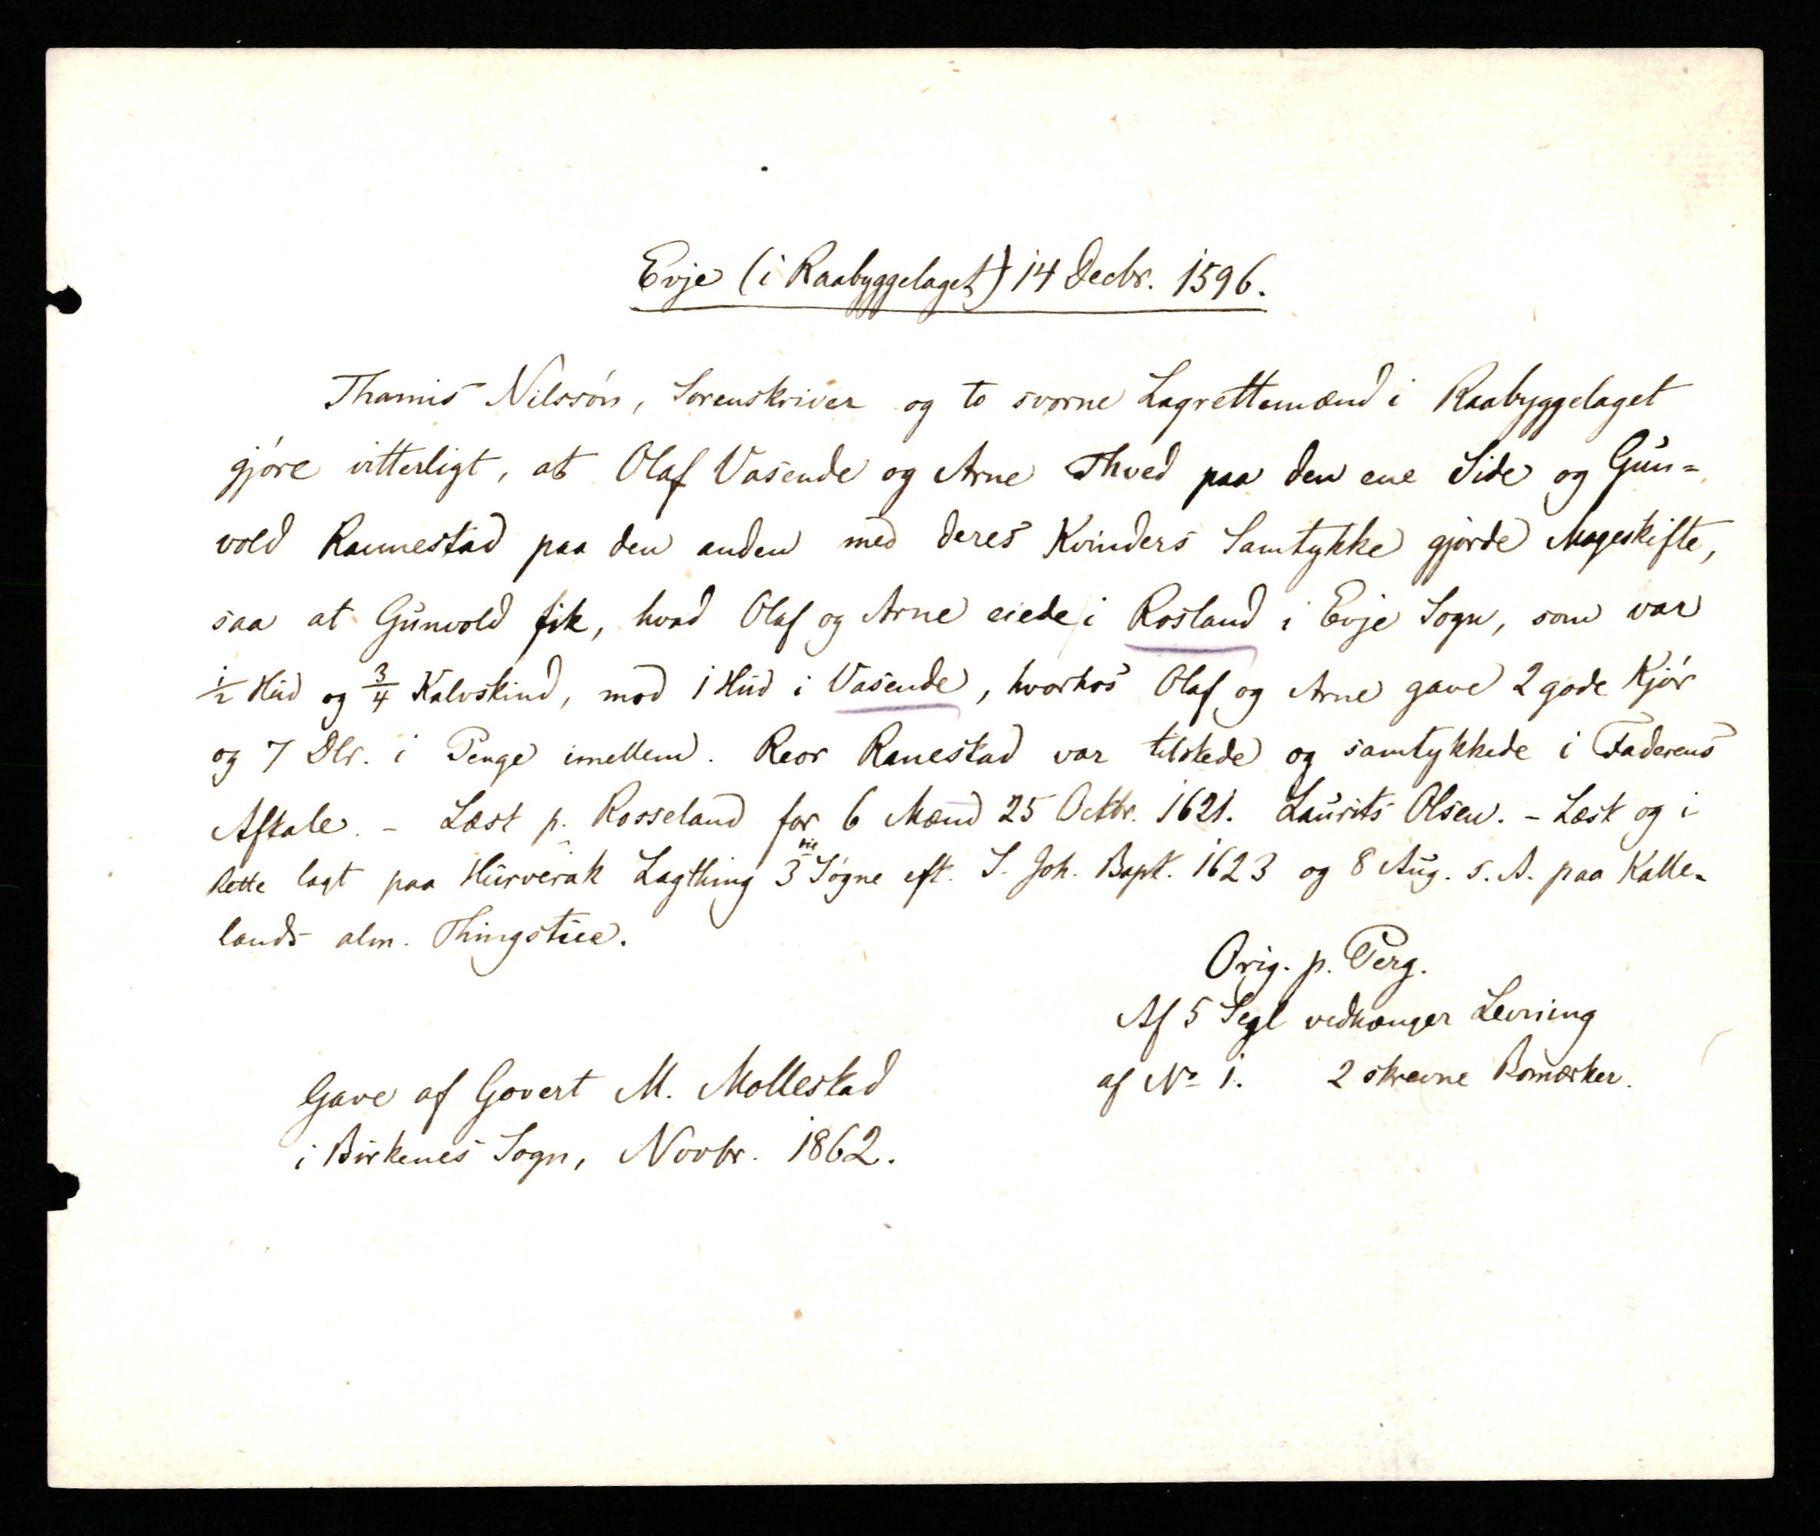 Evje (i Raabyggelaget) 14 Decbr. 1596.
Thamis Nilssøn, Sorenskriver og to svorne Lagrettemænd i Raabyggelaget
gjøre vitterligt, at Olaf Vasende og Arne Thved paa den ene Side og Gun=
vold Rannestad paa den anden med deres Kvinders Samtykke gjørde Mageskifte,
saa at Gunvold fik, hvad Olaf og Arne eiede i Rosland i Evje Sogn, som var
1/2 Hud og 3/4 Kalvskind, mod 1 Hud i Vasende, hvorhos Olaf og Arne gave 2 gode Kjør
og 7 Dlr. i Penge imellem. Reor Ranestad var tilstede og samtykkede i Faderens
Aftale. - Læst p. Rosseland for 6 Mænd 25 Octbr. 1621. Laurits Olsen. - Læst og i
Rette lagt paa Hurverak Lagthing 3die Søgne eft. S. Joh. Bapt. 1623 og 8 Aug. s. A. paa Kalle=
lands alm. Thingstue.
Orig. p. Perg.
Af 5 Segl vedhænger Levning
af No 1. 2 skrevne Bomærker.
Gave af Govert M. Mollestad
i Birkenes Sogn, Novbr. 1862.